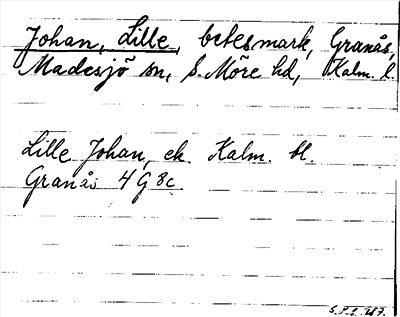 Johan, Lille, betesmark, Granås,
Madesjö sn, S. Möre hd, Kalm. l.
Lille Johan, ek. Kalm. bl.
Granås 4 G 8c.